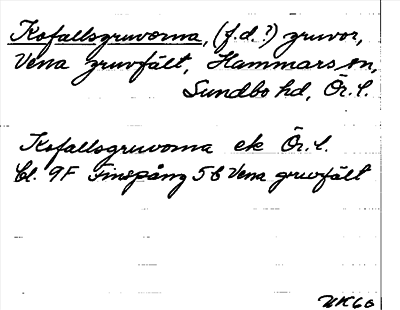 Kofallsgruvorna, (f.d.?) gruvor,
Vena gruvfält, Hammars sn,
Sundbo hd, Ör. l.
Kofallsgruvorna ek Ör. l.
Bl. 9F Finspång 5 b Vena gruvfält